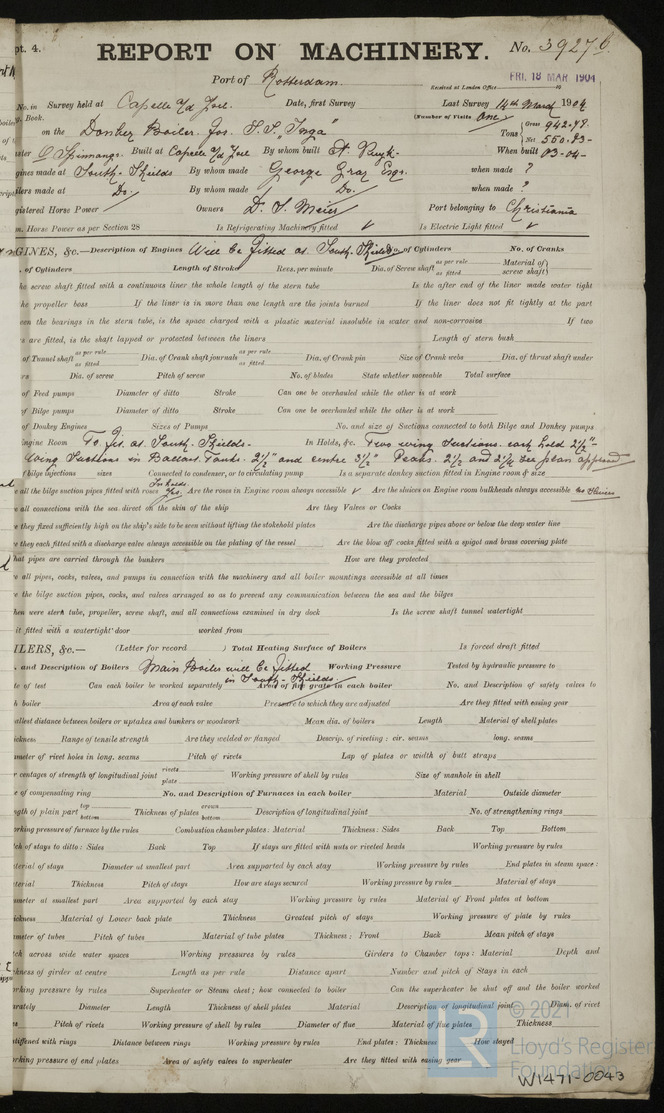 pt. 4.
REPORT ON MACHINERY. No. 3927 b.
Port of Rotterdam.
Received at London Office FRI. 18 MAR 1904
No. in Survey held at Capelle a/d Date, first Survey Last Survey 14th March 1904
Book. (Number of Visits One)
on the Donkey Boiler. for S.S. "Inga" Tons { Gross 942.78 Net 550.83
Built at Capelle a/d By whom built When built 03-04-
gines made at South-Shields By whom made George Gray Esqr. when made ?
ilers made at Do. By whom made Do. when made ?
gistered Horse Power Owners D. S. Meier Port belonging to Christiania
m. Horse Power as per Section 28 Is Refrigerating Machinery fitted Is Electric Light fitted
GINES, &c.—Description of Engines Will be fitted at South-Shields No. of Cylinders No. of Cranks
. of Cylinders Length of Stroke Revs. per minute Dia. of Screw shaft as per rule as fitted Material of screw shaft
he screw shaft fitted with a continuous liner the whole length of the stern tube Is the after end of the liner made water tight
he propeller boss If the liner is in more than one length are the joints burned If the liner does not fit tightly at the part
een the bearings in the stern tube, is the space charged with a plastic material insoluble in water and non-corrosive If two
s are fitted, is the shaft lapped or protected between the liners Length of stern bush
of Tunnel shaft as per rule as fitted Dia. of Crank shaft journals as per rule as fitted Dia. of Crank pin Size of Crank webs Dia. of thrust shaft under
rs Dia. of screw Pitch of screw No. of blades State whether moveable Total surface
of Feed pumps Diameter of ditto Stroke Can one be overhauled while the other is at work
of Bilge pumps Diameter of ditto Stroke Can one be overhauled while the other is at work
of Donkey Engines Sizes of Pumps No. and size of Suctions connected to both Bilge and Donkey pumps
ngine Room To fit at South-Shields- In Holds, &c. Two wing suctions each hold 2½"
Wing Suctions in Ballast Tanks 2½" and centre 3½" Peaks. 2½ and 2¼ see plan append
f bilge injections sizes Connected to condenser, or to circulating pump Is a separate donkey suction fitted in Engine room & size
e all the bilge suction pipes fitted with roses In holds Yes. Are the roses in Engine room always accessible Are the sluices on Engine room bulkheads always accessible no Sluices
e all connections with the sea direct on the skin of the ship Are they Valves or Cocks
e they fixed sufficiently high on the ship's side to be seen without lifting the stokehold plates Are the discharge pipes above or below the deep water line
e they each fitted with a discharge valve always accessible on the plating of the vessel Are the blow off cocks fitted with a spigot and brass covering plate
hat pipes are carried through the bunkers How are they protected
e all pipes, cocks, valves, and pumps in connection with the machinery and all boiler mountings accessible at all times
e the bilge suction pipes, cocks, and valves arranged so as to prevent any communication between the sea and the bilges
hen were stern tube, propeller, screw shaft, and all connections examined in dry dock Is the screw shaft tunnel watertight
it fitted with a watertight door worked from
ILERS, &c.— (Letter for record ) Total Heating Surface of Boilers Is forced draft fitted
. and Description of Boilers Main Boiler will be fitted in South-Shields. Working Pressure Tested by hydraulic pressure to
te of test Can each boiler be worked separately Area of fire grate in each boiler No. and Description of safety valves to
h boiler Area of each valve Pressure to which they are adjusted Are they fitted with easing gear
allest distance between boilers or uptakes and bunkers or woodwork Mean dia. of boilers Length Material of shell plates
ickness Range of tensile strength Are they welded or flanged Descrip. of riveting : cir. seams long. seams
ameter of rivet holes in long. seams Pitch of rivets Lap of plates or width of butt straps
r centages of strength of longitudinal joint rivets plate Working pressure of shell by rules Size of manhole in shell
e of compensating ring No. and Description of Furnaces in each boiler Material Outside diameter
ngth of plain part top bottom Thickness of plates crown bottom Description of longitudinal joint No. of strengthening rings
orking pressure of furnace by the rules Combustion chamber plates : Material Thickness : Sides Back Top Bottom
tch of stays to ditto : Sides Back Top If stays are fitted with nuts or riveted heads Working pressure by rules
terial of stays Diameter at smallest part Area supported by each stay Working pressure by rules End plates in steam space :
terial Thickness Pitch of stays How are stays secured Working pressure by rules Material of stays
ameter at smallest part Area supported by each stay Working pressure by rules Material of Front plates at bottom
ickness Material of Lower back plate Thickness Greatest pitch of stays Working pressure of plate by rules
ameter of tubes Pitch of tubes Material of tube plates Thickness : Front Back Mean pitch of stays
tch across wide water spaces Working pressures by rules Girders to Chamber tops : Material Depth and
ckness of girder at centre Length as per rule Distance apart Number and pitch of Stays in each
orking pressure by rules Superheater or Steam chest ; how connected to boiler Can the superheater be shut off and the boiler worked
arately Diameter Length Thickness of shell plates Material Description of longitudinal joint Diam. of rivet
es Pitch of rivets Working pressure of shell by rules Diameter of flue Material of flue plates Thickness
stiffened with rings Distance between rings Working pressure by rules End plates : Thickness How stayed
orking pressure of end plates Area of safety valves to superheater Are they fitted with easing gear
© 2021
Lloyd's Register
Foundation
W1471-0043